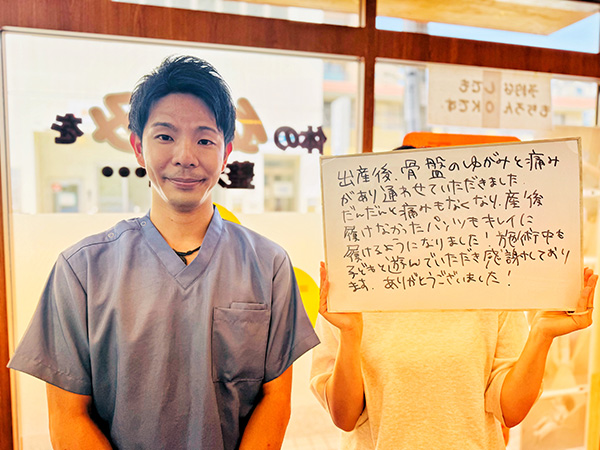 体の
を
予約なしでも
もちろんOKです。
出産後、骨盤のゆがみと痛み
があり通わせていただきました
だんだんと痛みもなくなり、産後
履けなかったパンツもキレイに
履けるようになりました！施術中も
子どもと遊んでいただき感謝しており
ます。ありがとうございました！